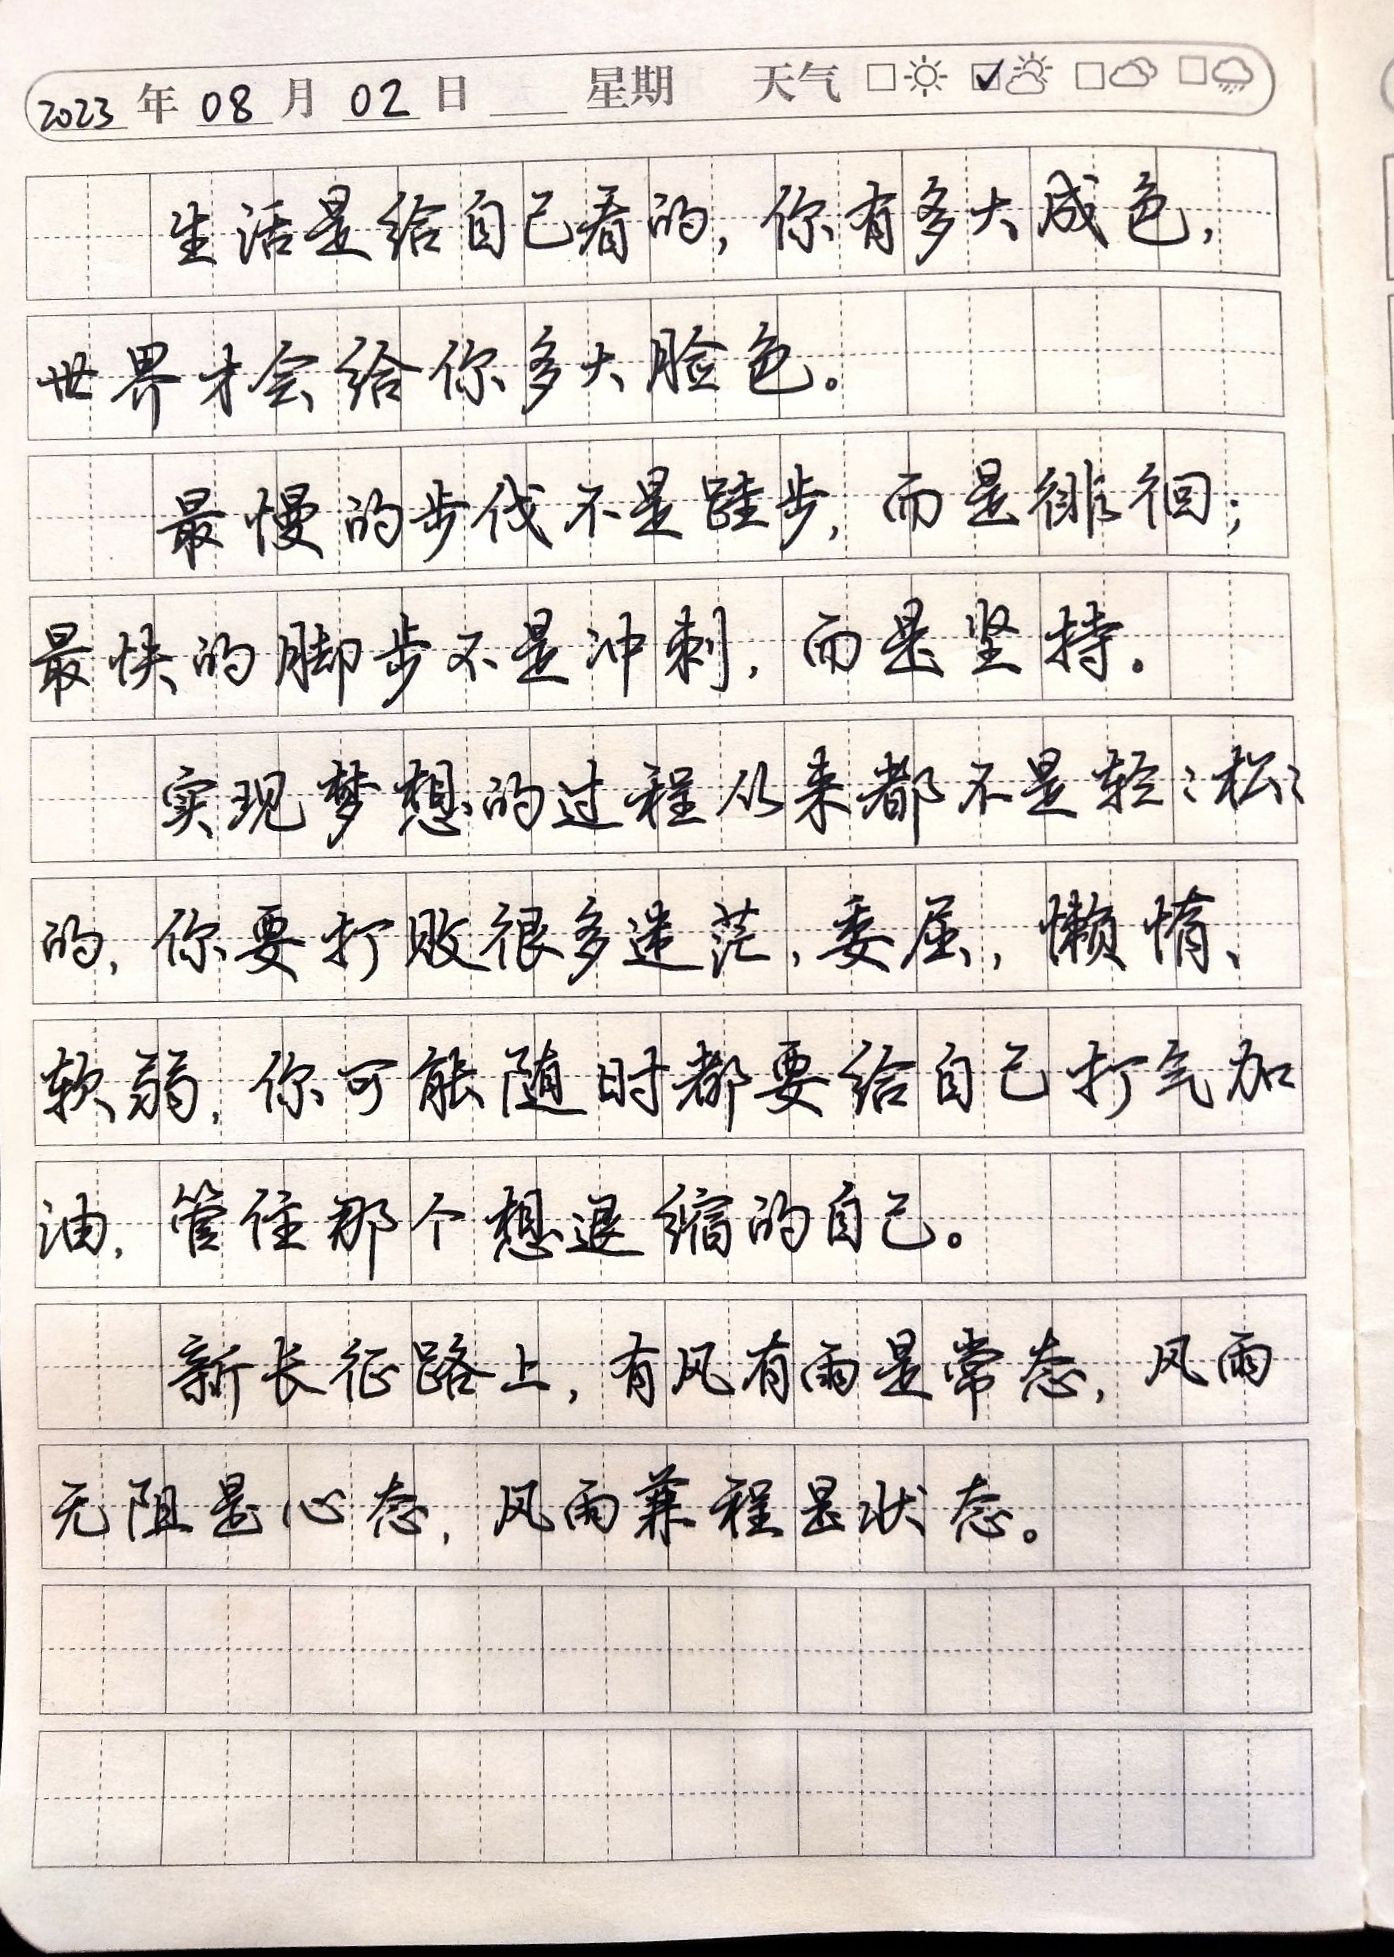 2023年08月02日 星期 天气
生活是给自己看的,你有多大成色,
世界才会给你多大脸色。
最慢的步伐不是跬步,而是徘徊;
最快的脚步不是冲刺,而是坚持。
实现梦想的过程从来都不是轻轻松松
的,你要打败很多迷茫、委屈,懒惰、
软弱,你可能随时都要给自己打气加
油,管住那个想退缩的自己。
新长征路上,有风有雨是常态,风雨
无阻是心态,风雨兼程是状态。